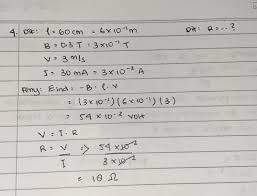 4. Dik: l = 60 cm = 6 x 10⁻¹ m Dit: R = ... ?
B = 0.3 T = 3 x 10⁻¹ T
V = 3 m/s
I = 30 mA = 3 x 10⁻² A
Peny: Eind = -B . l . V
= (3 x 10⁻¹) (6 x 10⁻¹) (3)
= 54 x 10⁻² volt
V = I . R
R = V/I => 54 x 10⁻²/3 x 10⁻²
= 18 Ω